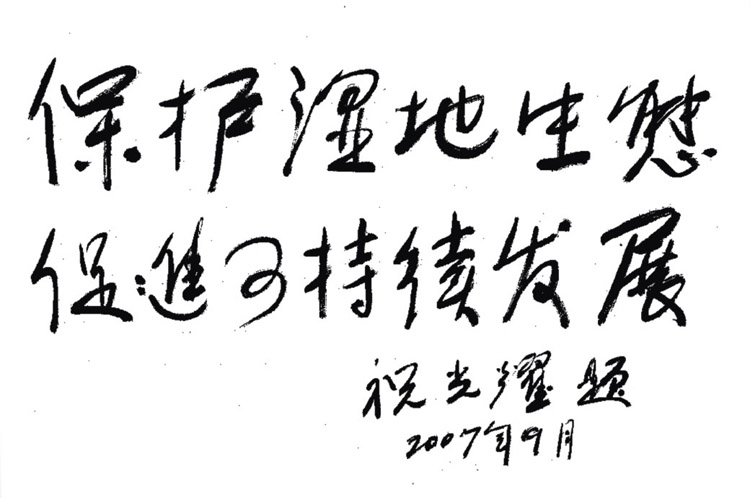 保护湿地生態
促進可持续发展
祝光耀题
2007年9月